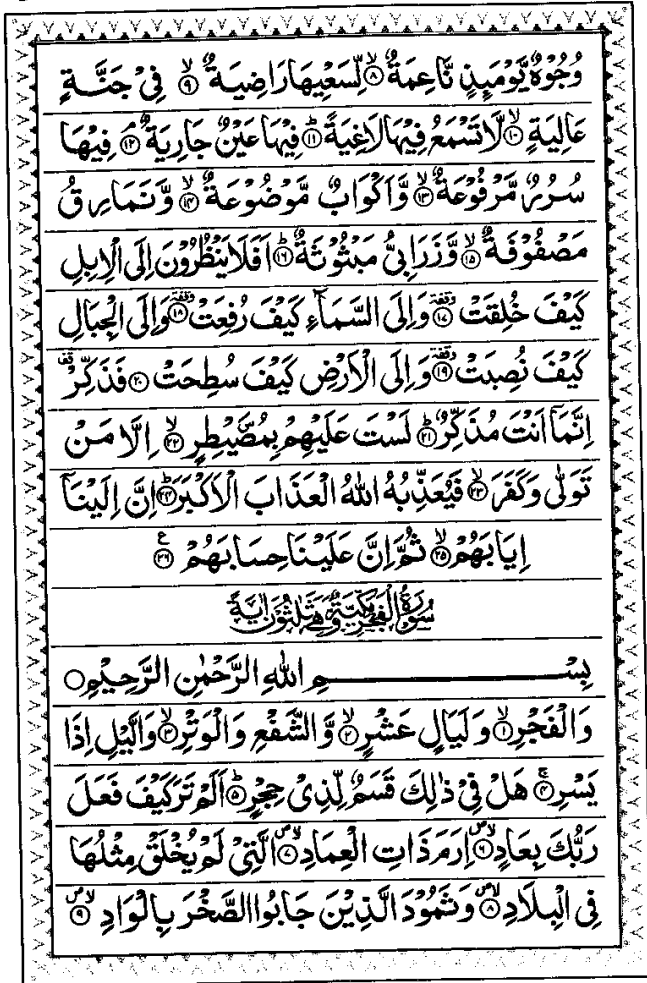 وُجُوۡهٌ يَّوۡمَٮِٕذٍ نَّاعِمَةٌ ۙ‏﴿۸﴾ لِّسَعۡيِهَا رَاضِيَةٌ ۙ‏﴿۹﴾ فِىۡ جَنَّةٍ
عَالِيَةٍ ۙ‏﴿۱۰﴾ لَّا تَسۡمَعُ فِيۡهَا لَاغِيَةً ؕ‏﴿۱۱﴾ فِيۡهَا عَيۡنٌ جَارِيَةٌ ۘ‏﴿۱۲﴾ فِيۡهَا
سُرُرٌ مَّرۡفُوۡعَةٌ ۙ‏﴿۱۳﴾ وَّاَكۡوَابٌ مَّوۡضُوۡعَةٌ ۙ‏﴿۱۴﴾ وَّنَمَارِقُ
مَصۡفُوۡفَةٌ ۙ‏﴿۱۵﴾ وَّزَرَابِىُّ مَبۡثُوۡثَةٌ ؕ‏﴿۱۶﴾ اَفَلَا يَنۡظُرُوۡنَ اِلَى الۡاِبِلِ
كَيۡفَ خُلِقَتۡ ‏﴿۱۷﴾ وقفة وَاِلَى السَّمَآءِ كَيۡفَ رُفِعَتۡ ‏﴿۱۸﴾ وقفة وَاِلَى الۡجِبَالِ
كَيۡفَ نُصِبَتۡ ‏﴿۱۹﴾ وقفة وَاِلَى الۡاَرۡضِ كَيۡفَ سُطِحَتۡ ‏﴿۲۰﴾ فَذَكِّرۡ قف
اِنَّمَاۤ اَنۡتَ مُذَكِّرٌ ؕ‏﴿۲۱﴾ لَسۡتَ عَلَيۡهِمۡ بِمُصَۜيۡطِرٍ ۙ‏﴿۲۲﴾ اِلَّا مَنۡ
تَوَلّٰى وَكَفَرَ ۙ‏﴿۲۳﴾ فَيُعَذِّبُهُ اللّٰهُ الۡعَذَابَ الۡاَكۡبَرَ ؕ‏﴿۲۴﴾ اِنَّ اِلَيۡنَاۤ
اِيَابَهُمۡ ۙ‏﴿۲۵﴾ ثُمَّ اِنَّ عَلَيۡنَا حِسَابَهُمۡ ‏﴿۲۶﴾ ع
سُوۡرَةُ الۡفَجۡرِ مَكِّيَّةٌ وَّهِىَ ثَلٰثُوۡنَ اٰيَةً
بِسۡمِ اللّٰهِ الرَّحۡمٰنِ الرَّحِيۡمِ ۝
وَالۡفَجۡرِ ۙ‏﴿۱﴾ وَلَيَالٍ عَشۡرٍ ۙ‏﴿۲﴾ وَّالشَّفۡعِ وَالۡوَتۡرِ ۙ‏﴿۳﴾ وَالَّيۡلِ اِذَا
يَسۡرِ ۚ‏﴿۴﴾ هَلۡ فِىۡ ذٰلِكَ قَسَمٌ لِّذِىۡ حِجۡرٍ ؕ‏﴿۵﴾ اَلَمۡ تَرَ كَيۡفَ فَعَلَ
رَبُّكَ بِعَادٍ ۙ‏﴿۶﴾ اِرَمَ ذَاتِ الۡعِمَادِ ۙ‏﴿۷﴾ الَّتِىۡ لَمۡ يُخۡلَقۡ مِثۡلُهَا
فِى الۡبِلَادِ ۙ‏﴿۸﴾ وَثَمُوۡدَ الَّذِيۡنَ جَابُوا الصَّخۡرَ بِالۡوَادِ ۙ‏﴿۹﴾